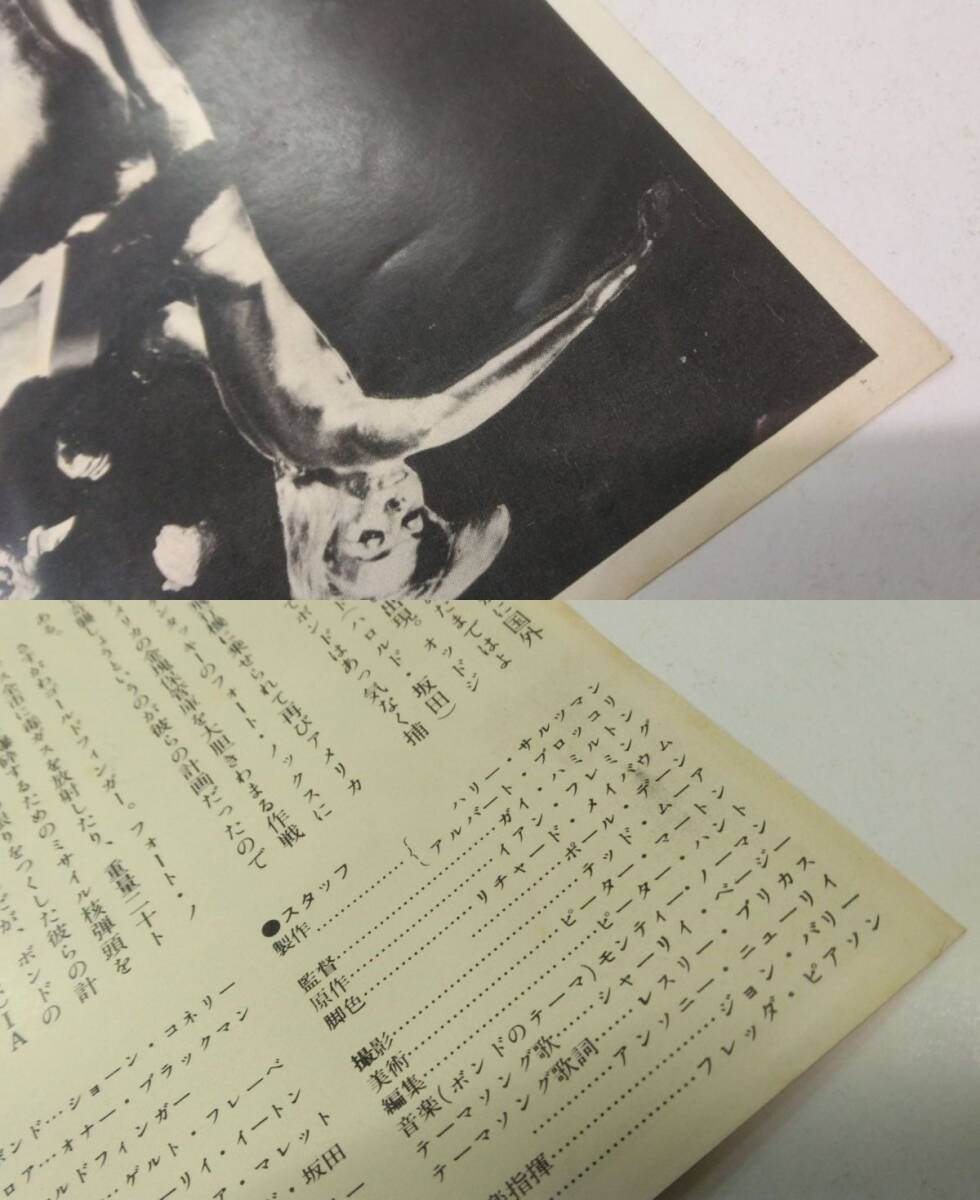 に国外
まではよ
オッドジ
出現。
ド(ハロルド・坂田)
てボンドはあっ気なく捕
機に乗せられて再びアメリカ
ンタッキーのフォート・ノックスに
メリカの金塊保管庫を大胆きわまる作戦
しようというのが彼らの計画だったので
ある。
さすがわゴールドフィンガー。フォート・ノ
ス全市に毒ガスを放射したり、重量二十ト
爆砕するためのミサイル核弾頭を
限りをつくした彼らの計
が、ボンドの
CIA
●スタッフ
製作………{ハリー・サルツマン
アルバート・ブロッコリ
監督………ガイ・ハミルトン
原作………イアン・フレミング
脚色………リチャード・メイバウム
ポール・デーン
撮影………テッド・ムーア
美術………ピーター・マートン
編集………ピーター・ハント
音楽(ボンドのテーマ)モンティー・ノーマン
テーマソング歌……シャーリイ・ベージー
テーマソング歌詞……レスリー・ブリカス
………アンソニー・ニューリイ
………ジョン・バリー
楽指揮………フレッダ・ピアソン
ボンド…ショーン・コネリー
ロア…オナー・ブラックマン
ルドフィンガー
…ゲルト・フレーベ
ーリイ・イートン
ア・マレット
ド・坂田